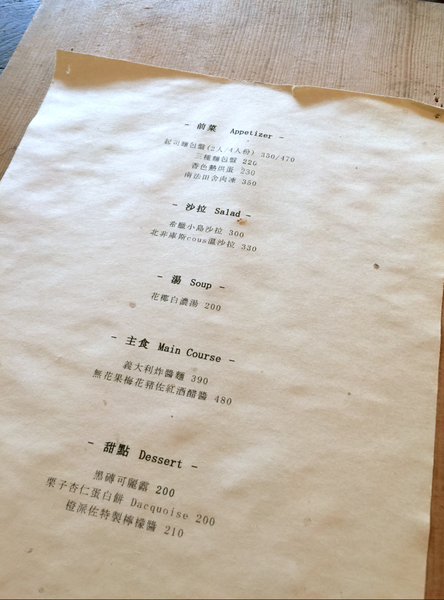 - 前菜 Appetizer -
起司麵包盤(2人/4人份) 350/470
三種麵包盤 220
杏色熱烘蛋 230
南法田舍肉凍 350
- 沙拉 Salad -
希臘小島沙拉 300
北非庫斯cous溫沙拉 330
- 湯 Soup -
花椰白濃湯 200
- 主食 Main Course -
義大利炸醬麵 390
無花果梅花豬佐紅酒醋醬 480
- 甜點 Dessert -
黑磚可麗露 200
栗子杏仁蛋白餅 Dacquoise 200
橙派佐特製檸檬醬 210